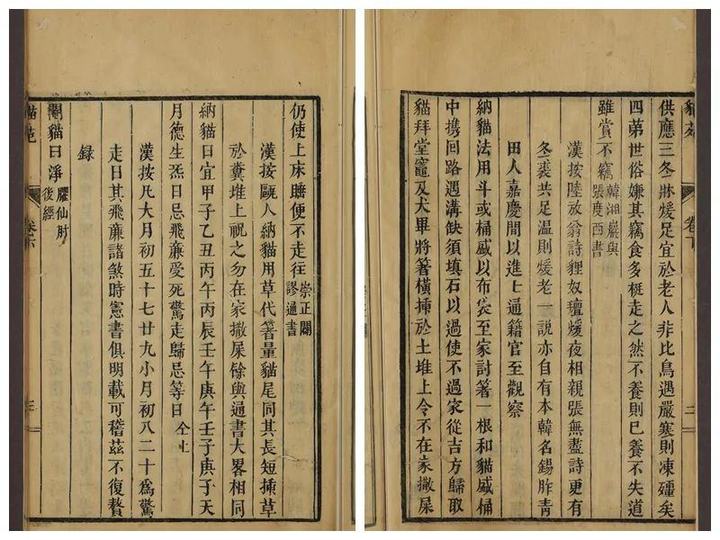 貓苑 卷下 二
供應三冬牀煖足宜於老人非比鳥遇嚴寒則凍殭矣
四弟世俗嫌其竊食多梃走之然不養則已養不失道
雖賞不竊 韓湘巖與
張度西書
漢按陸放翁詩貍奴氊煖夜相親張無盡詩更有
冬裘共足溫則煖老一說亦自有本韓名錫胙青
田人嘉慶間以進士通籍官至觀察
納貓法用斗或桶盛以布袋至家討箸一根和貓盛桶
中携回路遇溝缺須填石以過使不過家從吉方歸取
貓拜堂竈及犬畢將箸橫插於土堆上令不在家撒屎
仍使上床睡便不走往 崇正闢
謬通書
漢按甌人納貓用草代箸量貓尾同其長短插草
於糞堆上祝之勿在家撒屎餘與通書大畧相同
納貓日宜甲子乙丑丙午丙辰壬午庚午壬子庚子天
月德生炁日忌飛廉受死驚走歸忌等日 仝上
漢按凡大月初五十七廿九小月初八二十為驚
走日其飛廉諸煞時憲書俱明載可稽茲不復贅
錄
閹貓日淨 臞仙肘
後經
貓苑 卷下 三